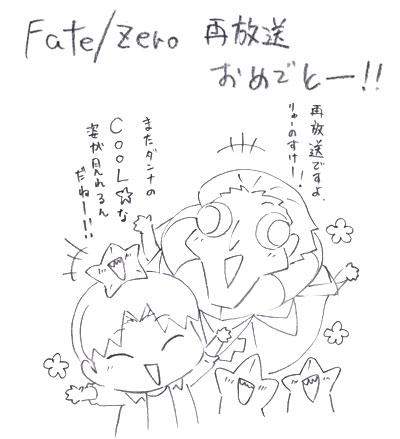 Fate/Zero 再放送
おめでとー!!
再放送ですよ、
りゅーのすけ!!
またダンナの
COOL☆な
姿が見れるん
だねー!!